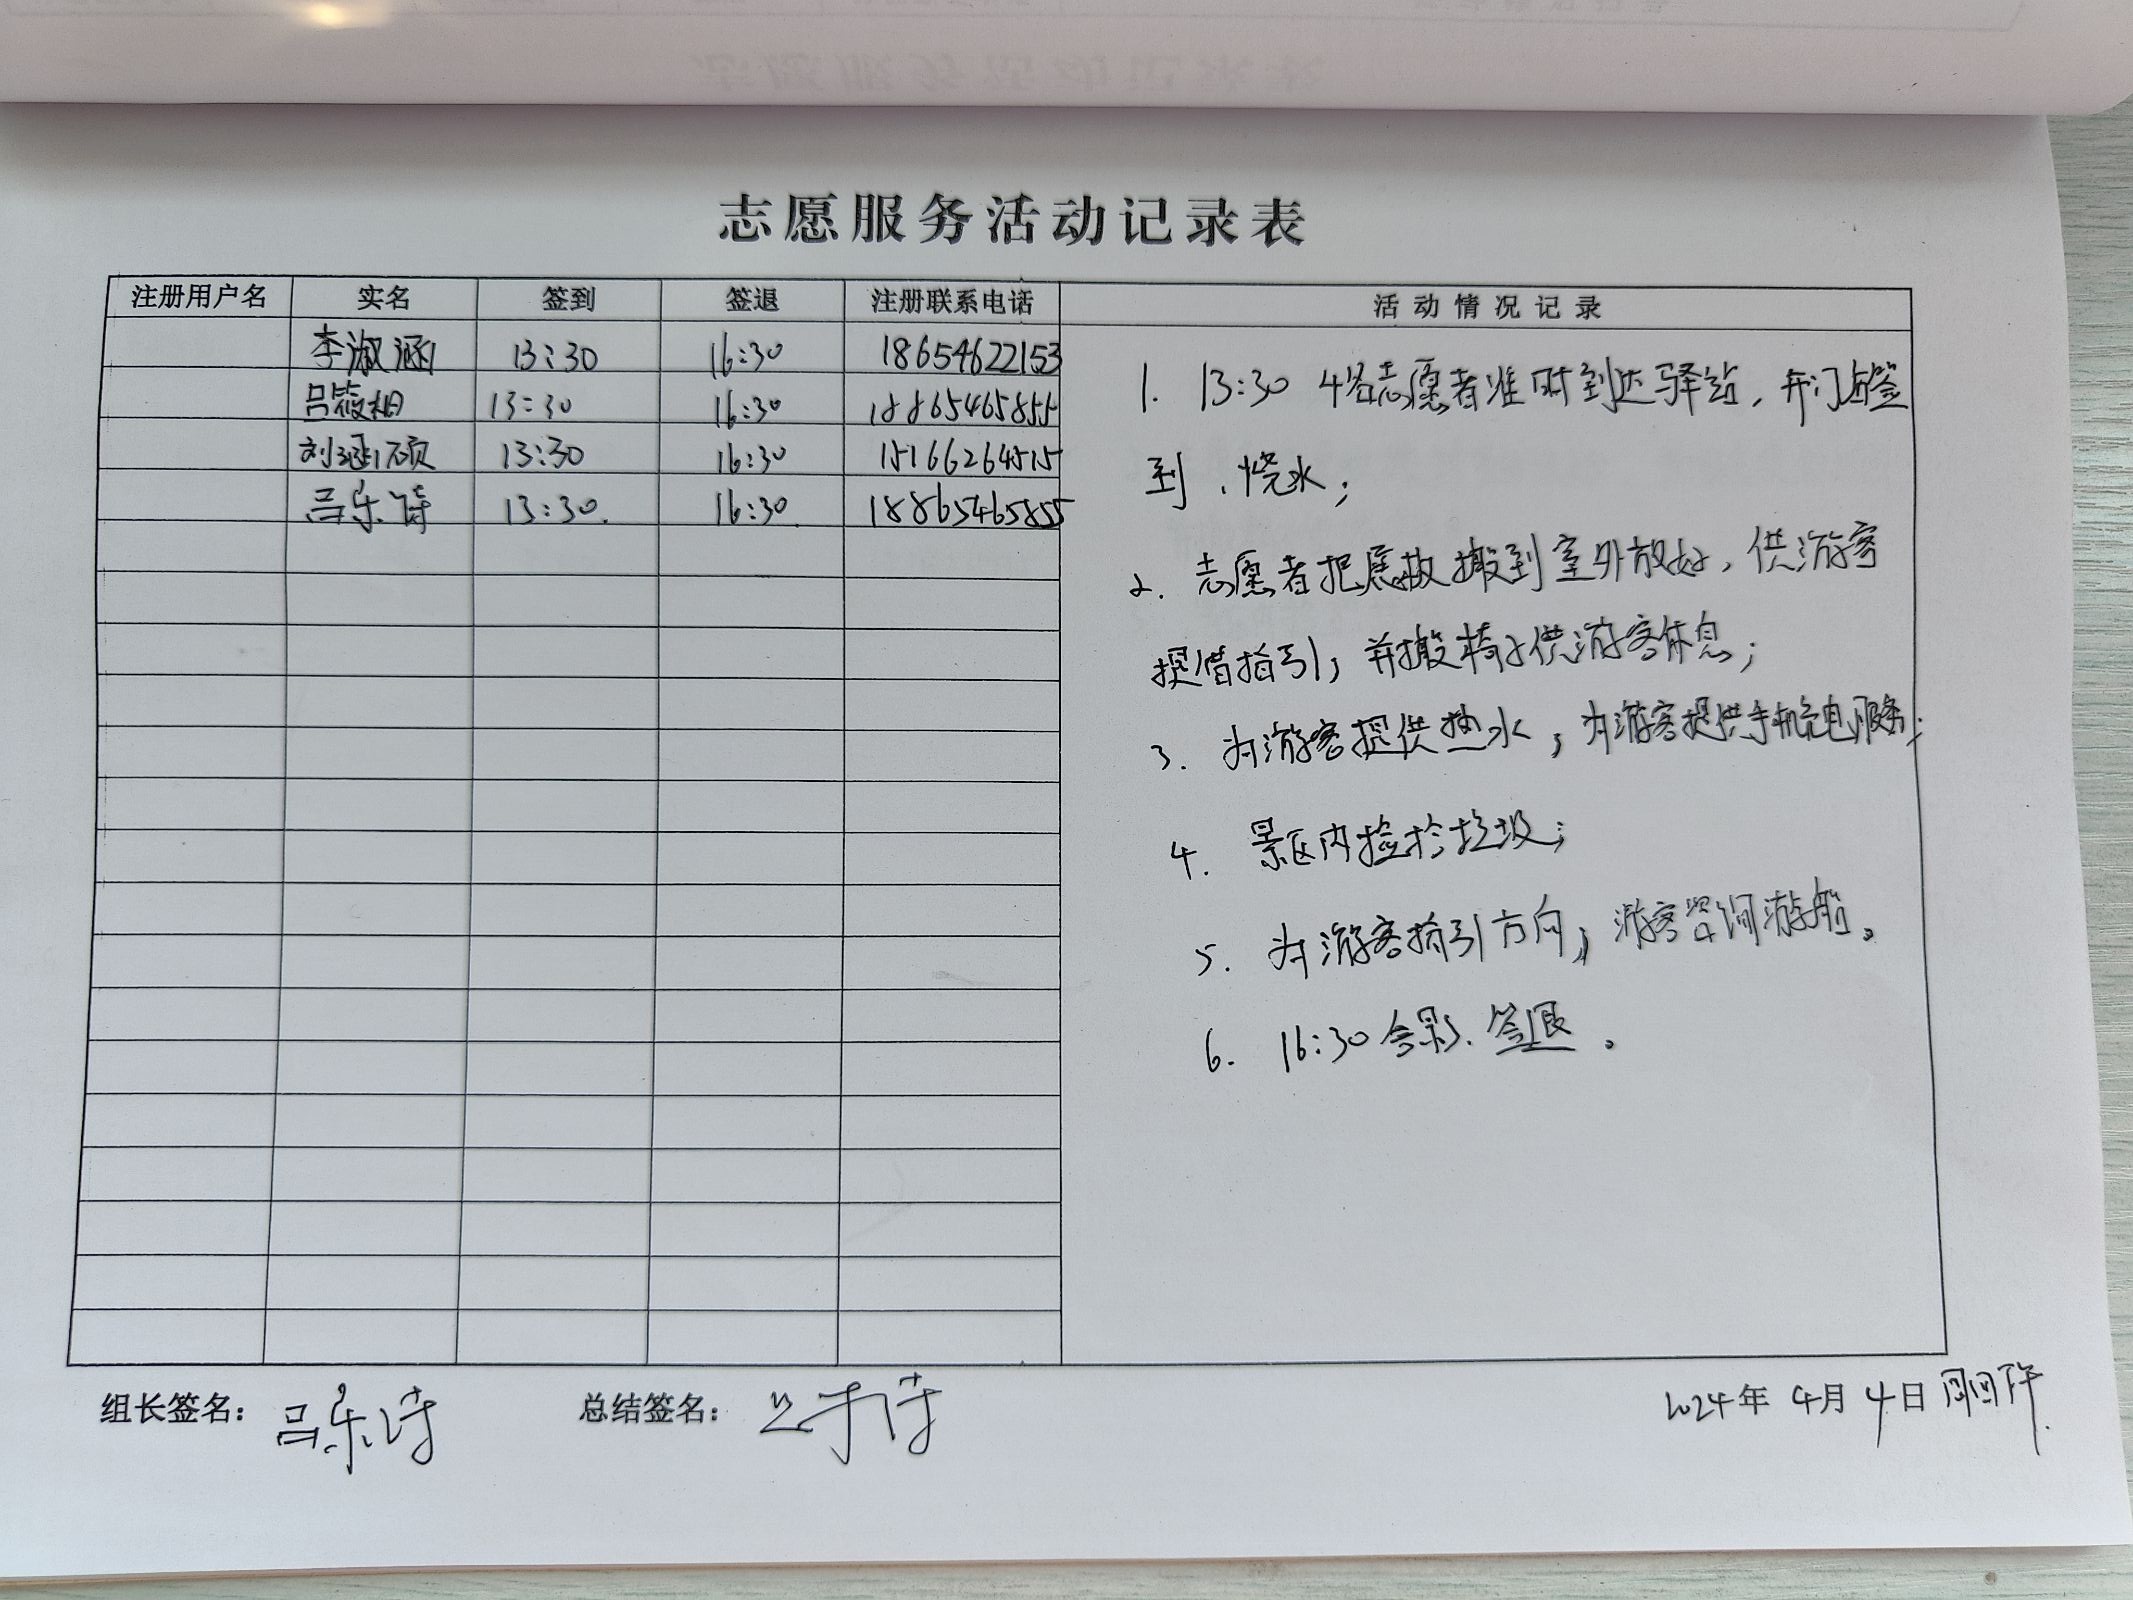 志愿服务活动记录表
注册用户名 实名 签到 签退 注册联系电话 活动情况记录
李淑涵 13:30 16:30 18654622153
吕筱相 13:30 16:30 18865465855
刘涵硕 13:30 16:30 15166264515
吕乐诗 13:30. 16:30. 18865465855
1. 13:30 4名志愿者准时到达驿站,开门,签
到、烧水;
2. 志愿者把展板搬到室外放好,供游客
提借指引;并搬椅子供游客休息;
3. 为游客提供热水,为游客提供手机充电服务;
4. 景区内捡拾垃圾;
5. 为游客指引方向,游客咨询游船。
6. 16:30合影、签退。
组长签名: 吕乐诗 总结签名: 2024年4月4日 周四下午